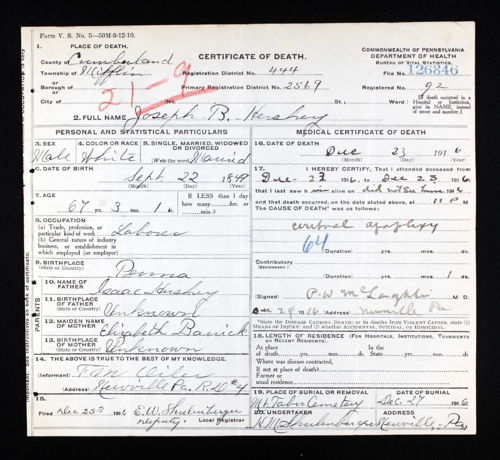 Form V. S. No. 5—50M-9-12-10.
1. PLACE OF DEATH.
County of Cumberland
Township of Mifflin
or
Borough of
or
City of
21-9
CERTIFICATE OF DEATH.
Registration District No. 444
Primary Registration District No. 2569
No. St. Ward
COMMONWEALTH OF PENNSYLVANIA
DEPARTMENT OF HEALTH
BUREAU OF VITAL STATISTICS.
File No. 126346
Registered No. 92
[If death occurred in a Hospital or Institution, give its NAME, instead of street and number.]
2. FULL NAME Joseph B. Hershey
PERSONAL AND STATISTICAL PARTICULARS
3. SEX Male
4. COLOR OR RACE White
5. SINGLE, MARRIED, WIDOWED OR DIVORCED Married
6. DATE OF BIRTH
Sept 22
(Month) (Day) (Year)
7. AGE
67 yrs. 3 mos. 1 ds.
If LESS than 1 day how many hrs. or min.
8. OCCUPATION
(a) Trade, profession, or particular kind of work Laborer
(b) General nature of industry, business, or establishment in which employed (or employer)
9. BIRTHPLACE (State or Country) Penna
PARENTS
10. NAME OF FATHER Isaac Hershey
11. BIRTHPLACE OF FATHER (State or Country) Unknown
12. MAIDEN NAME OF MOTHER Elizabeth
13. BIRTHPLACE OF MOTHER (State or Country) Unknown
14. THE ABOVE IS TRUE TO THE BEST OF MY KNOWLEDGE.
(Informant)
(Address) Newville Pa. R.D. #4
15.
Filed Dec 25th 1916 E. W. Shulenberger
Deputy Local Registrar
MEDICAL CERTIFICATE OF DEATH
16. DATE OF DEATH
Dec 23 1916
(Month) (Day) (Year)
17. I HEREBY CERTIFY, That I attended deceased from
Dec 23 1916, to Dec 23 1916
that I last saw him alive on did not see him 1916
and that death occurred, on the date stated above, at 11 P M.
The CAUSE OF DEATH* was as follows:
cerebral apoplexy
64
(Duration) yrs. mos. ds.
Contributory (Secondary)
(Duration) yrs. mos. 1 ds.
(Signed) P. W. McLaughlin M. D.
Dec 24 1916 (Address) Newville Pa
*State the DISEASE CAUSING DEATH; or in deaths from VIOLENT CAUSES, state (1) MEANS OF INJURY; and (2) whether ACCIDENTAL, SUICIDAL, or HOMICIDAL.
18. LENGTH OF RESIDENCE (FOR HOSPITALS, INSTITUTIONS, TRANSIENTS OR RECENT RESIDENTS).
At place of death yrs. mos. ds. In the State yrs. mos. ds.
Where was disease contracted,
if not at place of death?
Former or usual residence
19. PLACE OF BURIAL OR REMOVAL Mt Tabor Cemetery
DATE OF BURIAL Dec. 27 1916
20. UNDERTAKER H. M. Shulenberger
ADDRESS Newville, Pa.